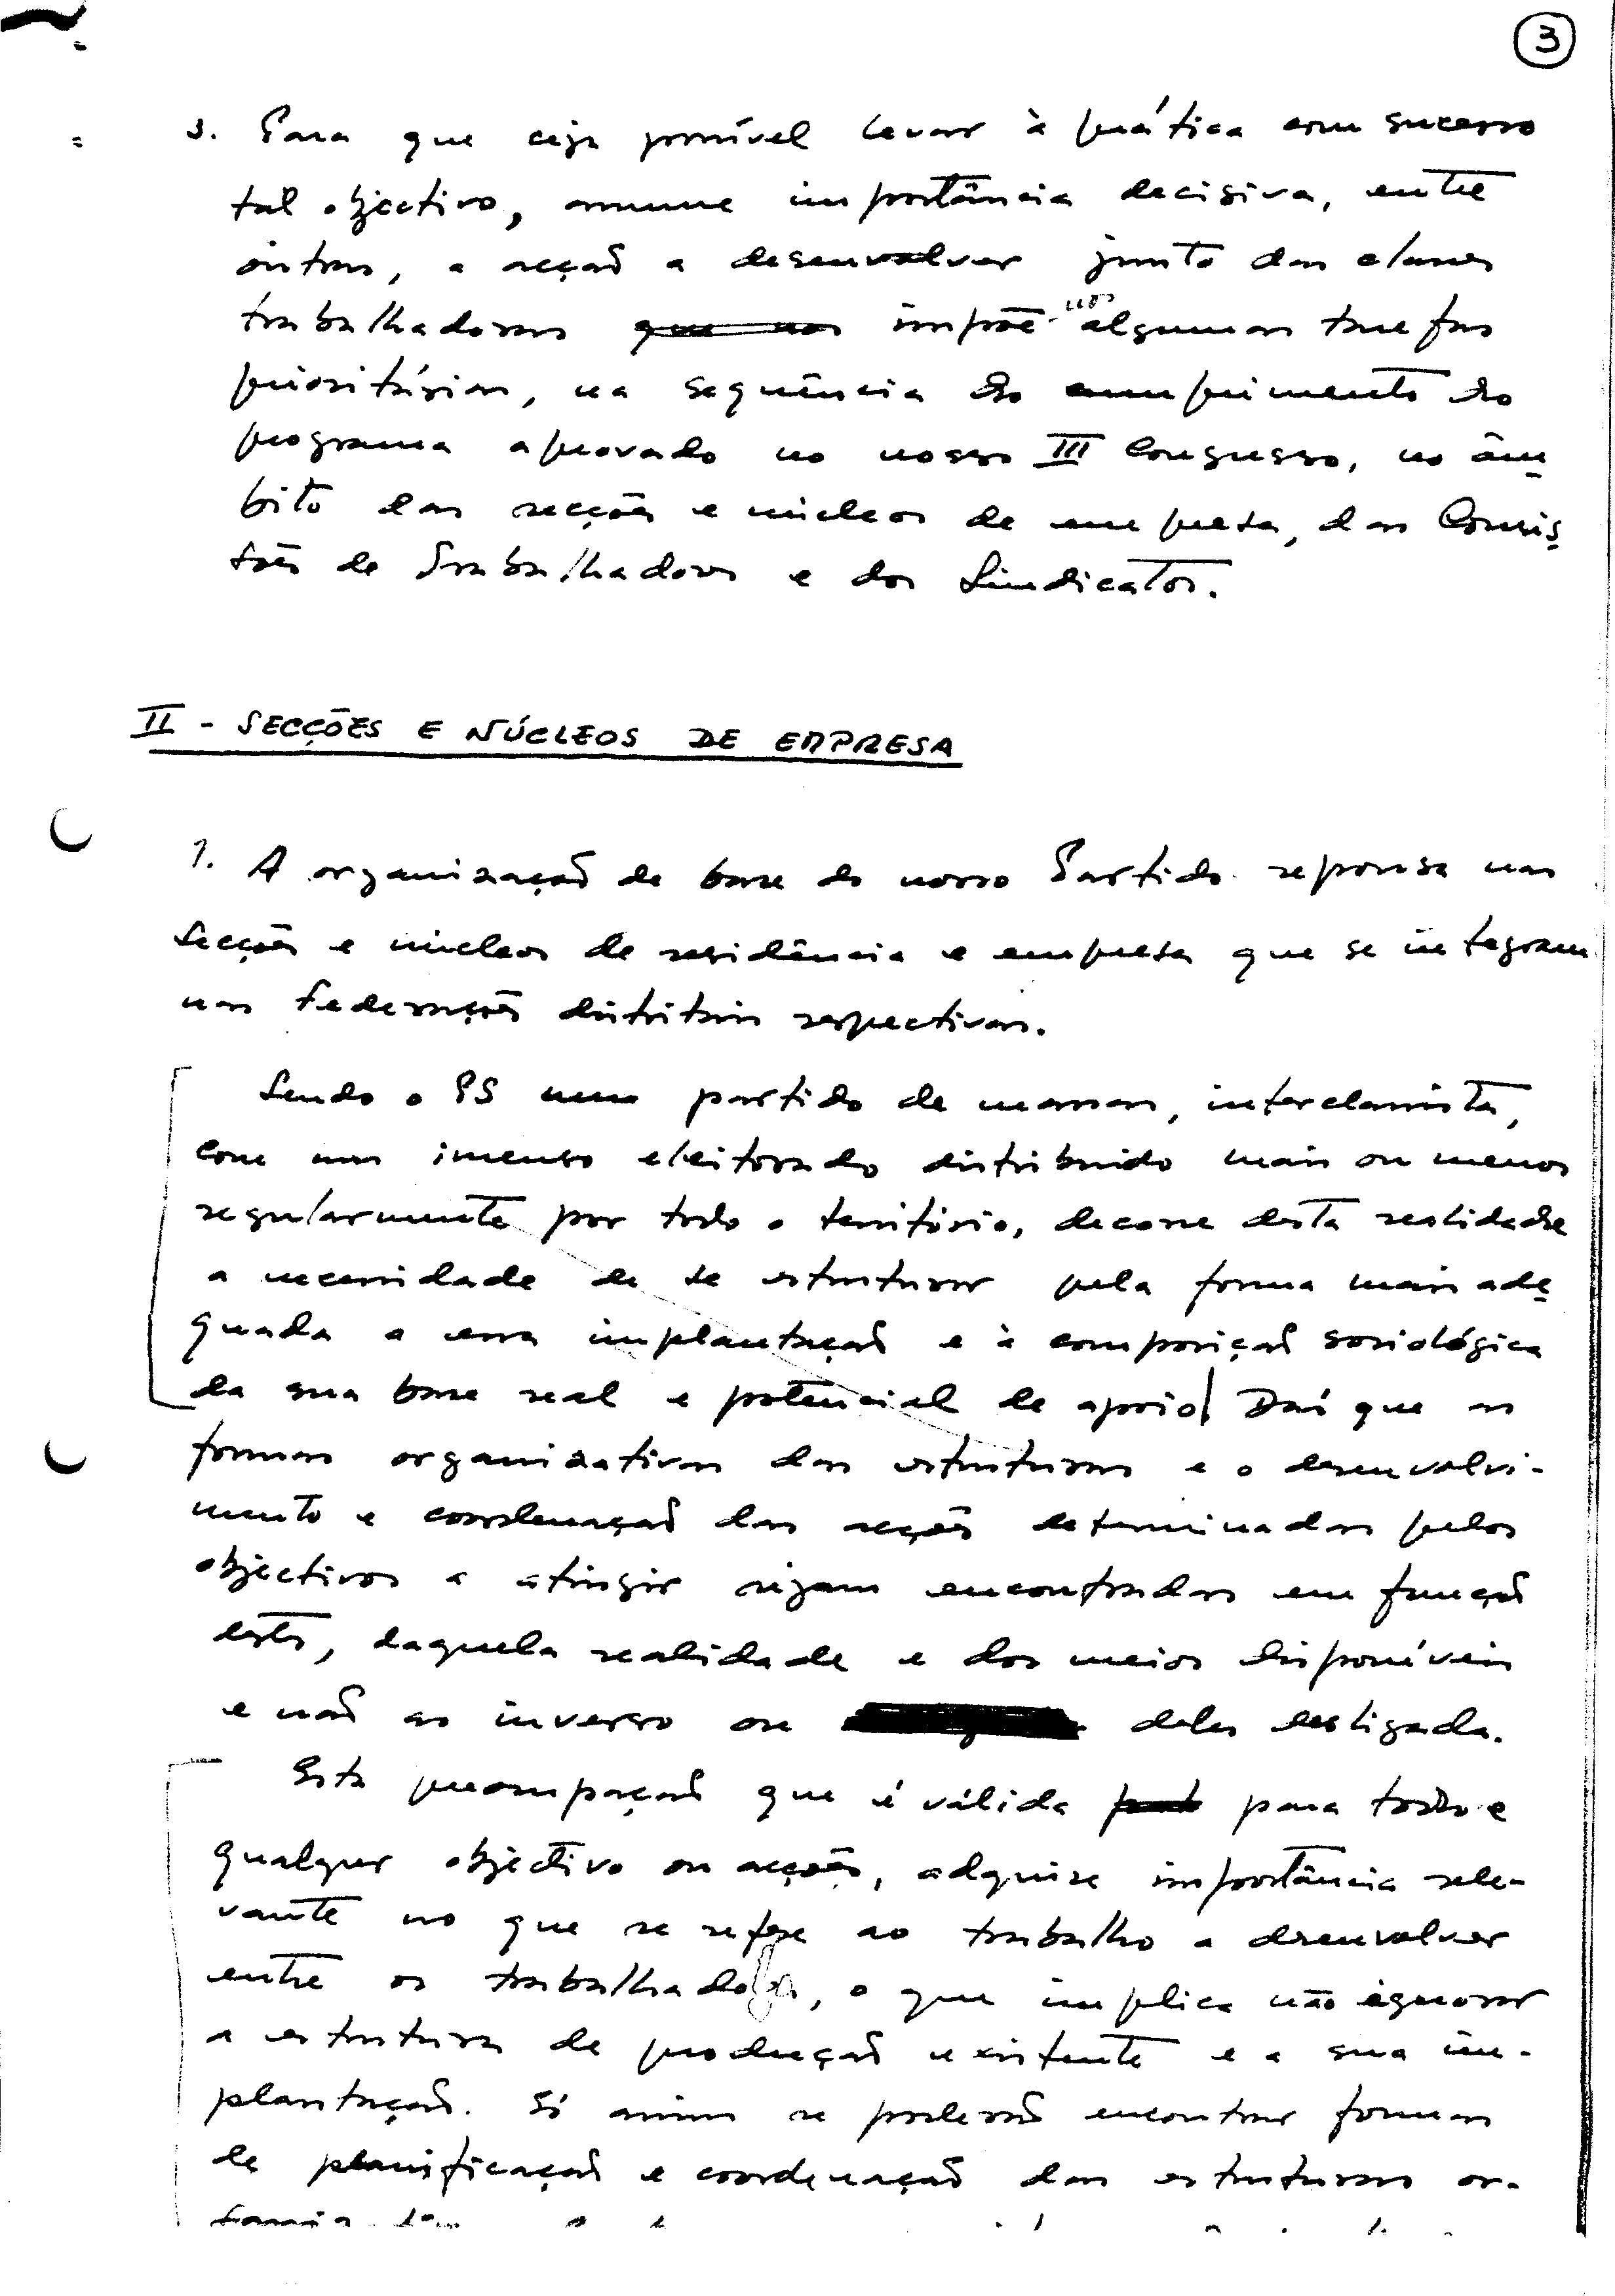 3
3. Para que seja possível levar à prática com sucesso
tal objectivo, assume importância decisiva, entre
outras, a acção a desenvolver junto das classes
trabalhadoras que nos impõe-nos algumas tarefas
prioritárias, na sequência do cumprimento do
programa aprovado no nosso III Congresso, no âm
bito das secções e núcleos de empresa, das Comis
sões de Trabalhadores e dos Sindicatos.
II - SECÇÕES E NÚCLEOS DE EMPRESA
1. A organização de base do nosso Partido repousa nas
Secções e núcleos de residência e empresa que se integram
nas Federações distritais respectivas.
Sendo o PS um partido de massas, interclassista,
com um imenso eleitorado distribuido mais ou menos
regularmente por todo o território, decorre desta realidade
a necessidade de se estruturar pela forma mais ade
quada a essa implantação e à composição sociológica
da sua base real e potencial de apoio. Daí que as
formas organizativas das estruturas e o desenvolvi-
mento e coordenação das acções determinadas pelos
objectivos a atingir sejam encontradas em função
destes, daquela realidade e dos meios disponíveis
e não ao inverso ou deles desligada.
Esta preocupação que é válida para todo e
qualquer objectivo ou acções, adquire importância rele-
vante no que se refere ao trabalho a desenvolver
entre os trabalhadores, o que implica não ignorar
a estrutura de produção existente e a sua im-
plantação. Só assim se poderão encontrar formas
de planificação e coordenação das estruturas or-